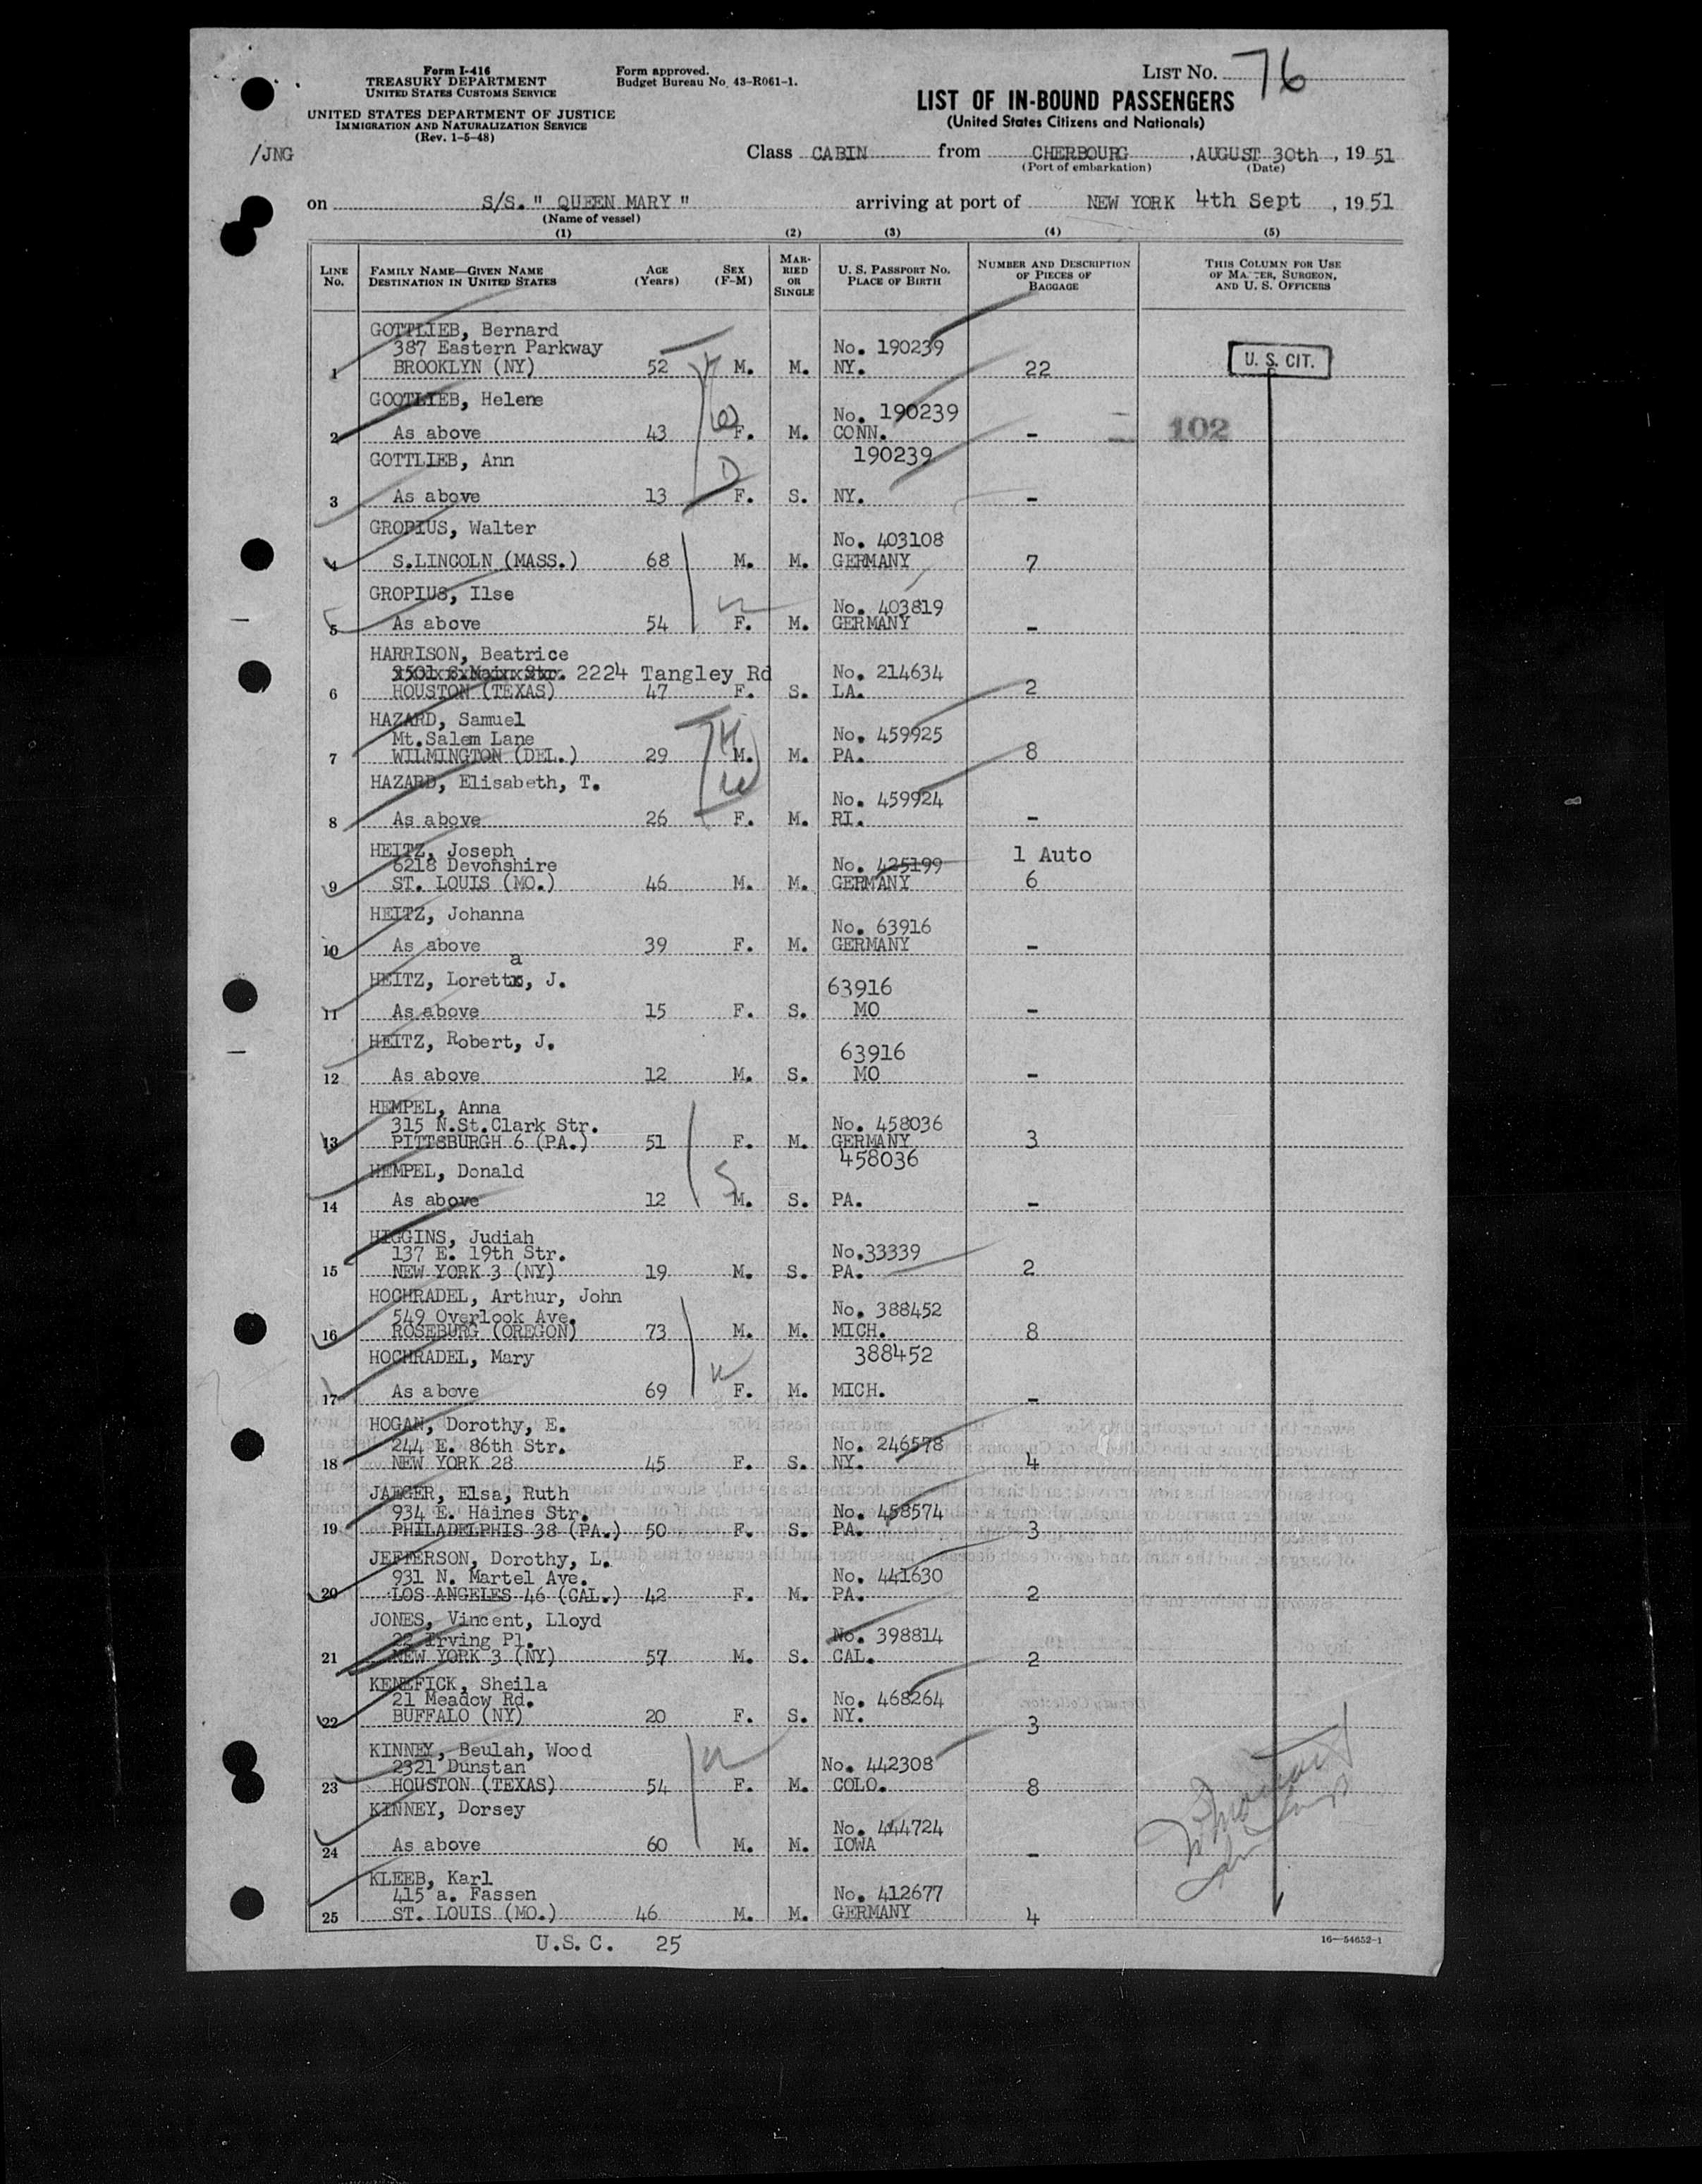 Form I-416
TREASURY DEPARTMENT
UNITED STATES CUSTOMS SERVICE
UNITED STATES DEPARTMENT OF JUSTICE
IMMIGRATION AND NATURALIZATION SERVICE
(Rev. 1-5-48)
Form approved.
Budget Bureau No. 43-R061-1.
LIST No. 76
LIST OF IN-BOUND PASSENGERS
(United States Citizens and Nationals)
/JNG
Class CABIN from CHERBOURG, AUGUST 30th, 1951
(Port of embarkation) (Date)
on S/S. " QUEEN MARY " arriving at port of NEW YORK 4th Sept, 1951
(Name of vessel)
(1) (2) (3) (4) (5)
LINE No. FAMILY NAME—GIVEN NAME DESTINATION IN UNITED STATES AGE (Years) SEX (F-M) MARRIED OR SINGLE U. S. PASSPORT No. PLACE OF BIRTH NUMBER AND DESCRIPTION OF PIECES OF BAGGAGE THIS COLUMN FOR USE OF MASTER, SURGEON, AND U. S. OFFICERS
GOTTLIEB, Bernard
387 Eastern Parkway No. 190239
1 BROOKLYN (NY) 52 M. M. NY. 22 U. S. CIT.
GOOTLIEB, Helene No. 190239
2 As above 43 F. M. CONN. - 102
GOTTLIEB, Ann 190239
3 As above 13 F. S. NY. -
GROPIUS, Walter No. 403108
4 S.LINCOLN (MASS.) 68 M. M. GERMANY 7
GROPIUS, Ilse No. 403819
5 As above 54 F. M. GERMANY -
HARRISON, Beatrice
2224 Tangley Rd No. 214634
6 HOUSTON (TEXAS) 47 F. S. LA. 2
HAZARD, Samuel
Mt.Salem Lane No. 459925
7 WILMINGTON (DEL.) 29 M. M. PA. 8
HAZARD, Elisabeth, T. No. 459924
8 As above 26 F. M. RI. -
HEITZ, Joseph 1 Auto
6218 Devonshire No. 425199
9 ST. LOUIS (MO.) 46 M. M. GERMANY 6
HEITZ, Johanna No. 63916
10 As above 39 F. M. GERMANY -
HEITZ, Loretta, J. 63916
11 As above 15 F. S. MO -
HEITZ, Robert, J. 63916
12 As above 12 M. S. MO -
HEMPEL, Anna
315 N.St.Clark Str. No. 458036
13 PITTSBURGH 6 (PA.) 51 F. M. GERMANY 3
HEMPEL, Donald 458036
14 As above 12 M. S. PA. -
HIGGINS, Judiah
137 E. 19th Str. No.33339
15 NEW YORK 3 (NY) 19 M. S. PA. 2
HOCHRADEL, Arthur, John
549 Overlook Ave. No. 388452
16 ROSEBURG (OREGON) 73 M. M. MICH. 8
HOCHRADEL, Mary 388452
17 As above 69 F. M. MICH. -
HOGAN, Dorothy, E.
244 E. 86th Str. No. 246578
18 NEW YORK 28 45 F. S. NY. 4
JAEGER, Elsa, Ruth
934 E. Haines Str. No. 458574
19 PHILADELPHIS 38 (PA.) 50 F. S. PA. 3
JEFFERSON, Dorothy, L.
931 N. Martel Ave. No. 441630
20 LOS ANGELES 46 (CAL.) 42 F. M. PA. 2
JONES, Vincent, Lloyd
22 Irving Pl. No. 398814
21 NEW YORK 3 (NY) 57 M. S. CAL. 2
KENEFICK, Sheila
21 Meadow Rd. No. 468264
22 BUFFALO (NY) 20 F. S. NY. 3
KINNEY, Beulah, Wood
2321 Dunstan No. 442308
23 HOUSTON (TEXAS) 54 F. M. COLO. 8
KINNEY, Dorsey No. 444724
24 As above 60 M. M. IOWA -
KLEEB, Karl
415 a. Fassen No. 412677
25 ST. LOUIS (MO.) 46 M. M. GERMANY 4
U.S.C. 25
16—54652-1